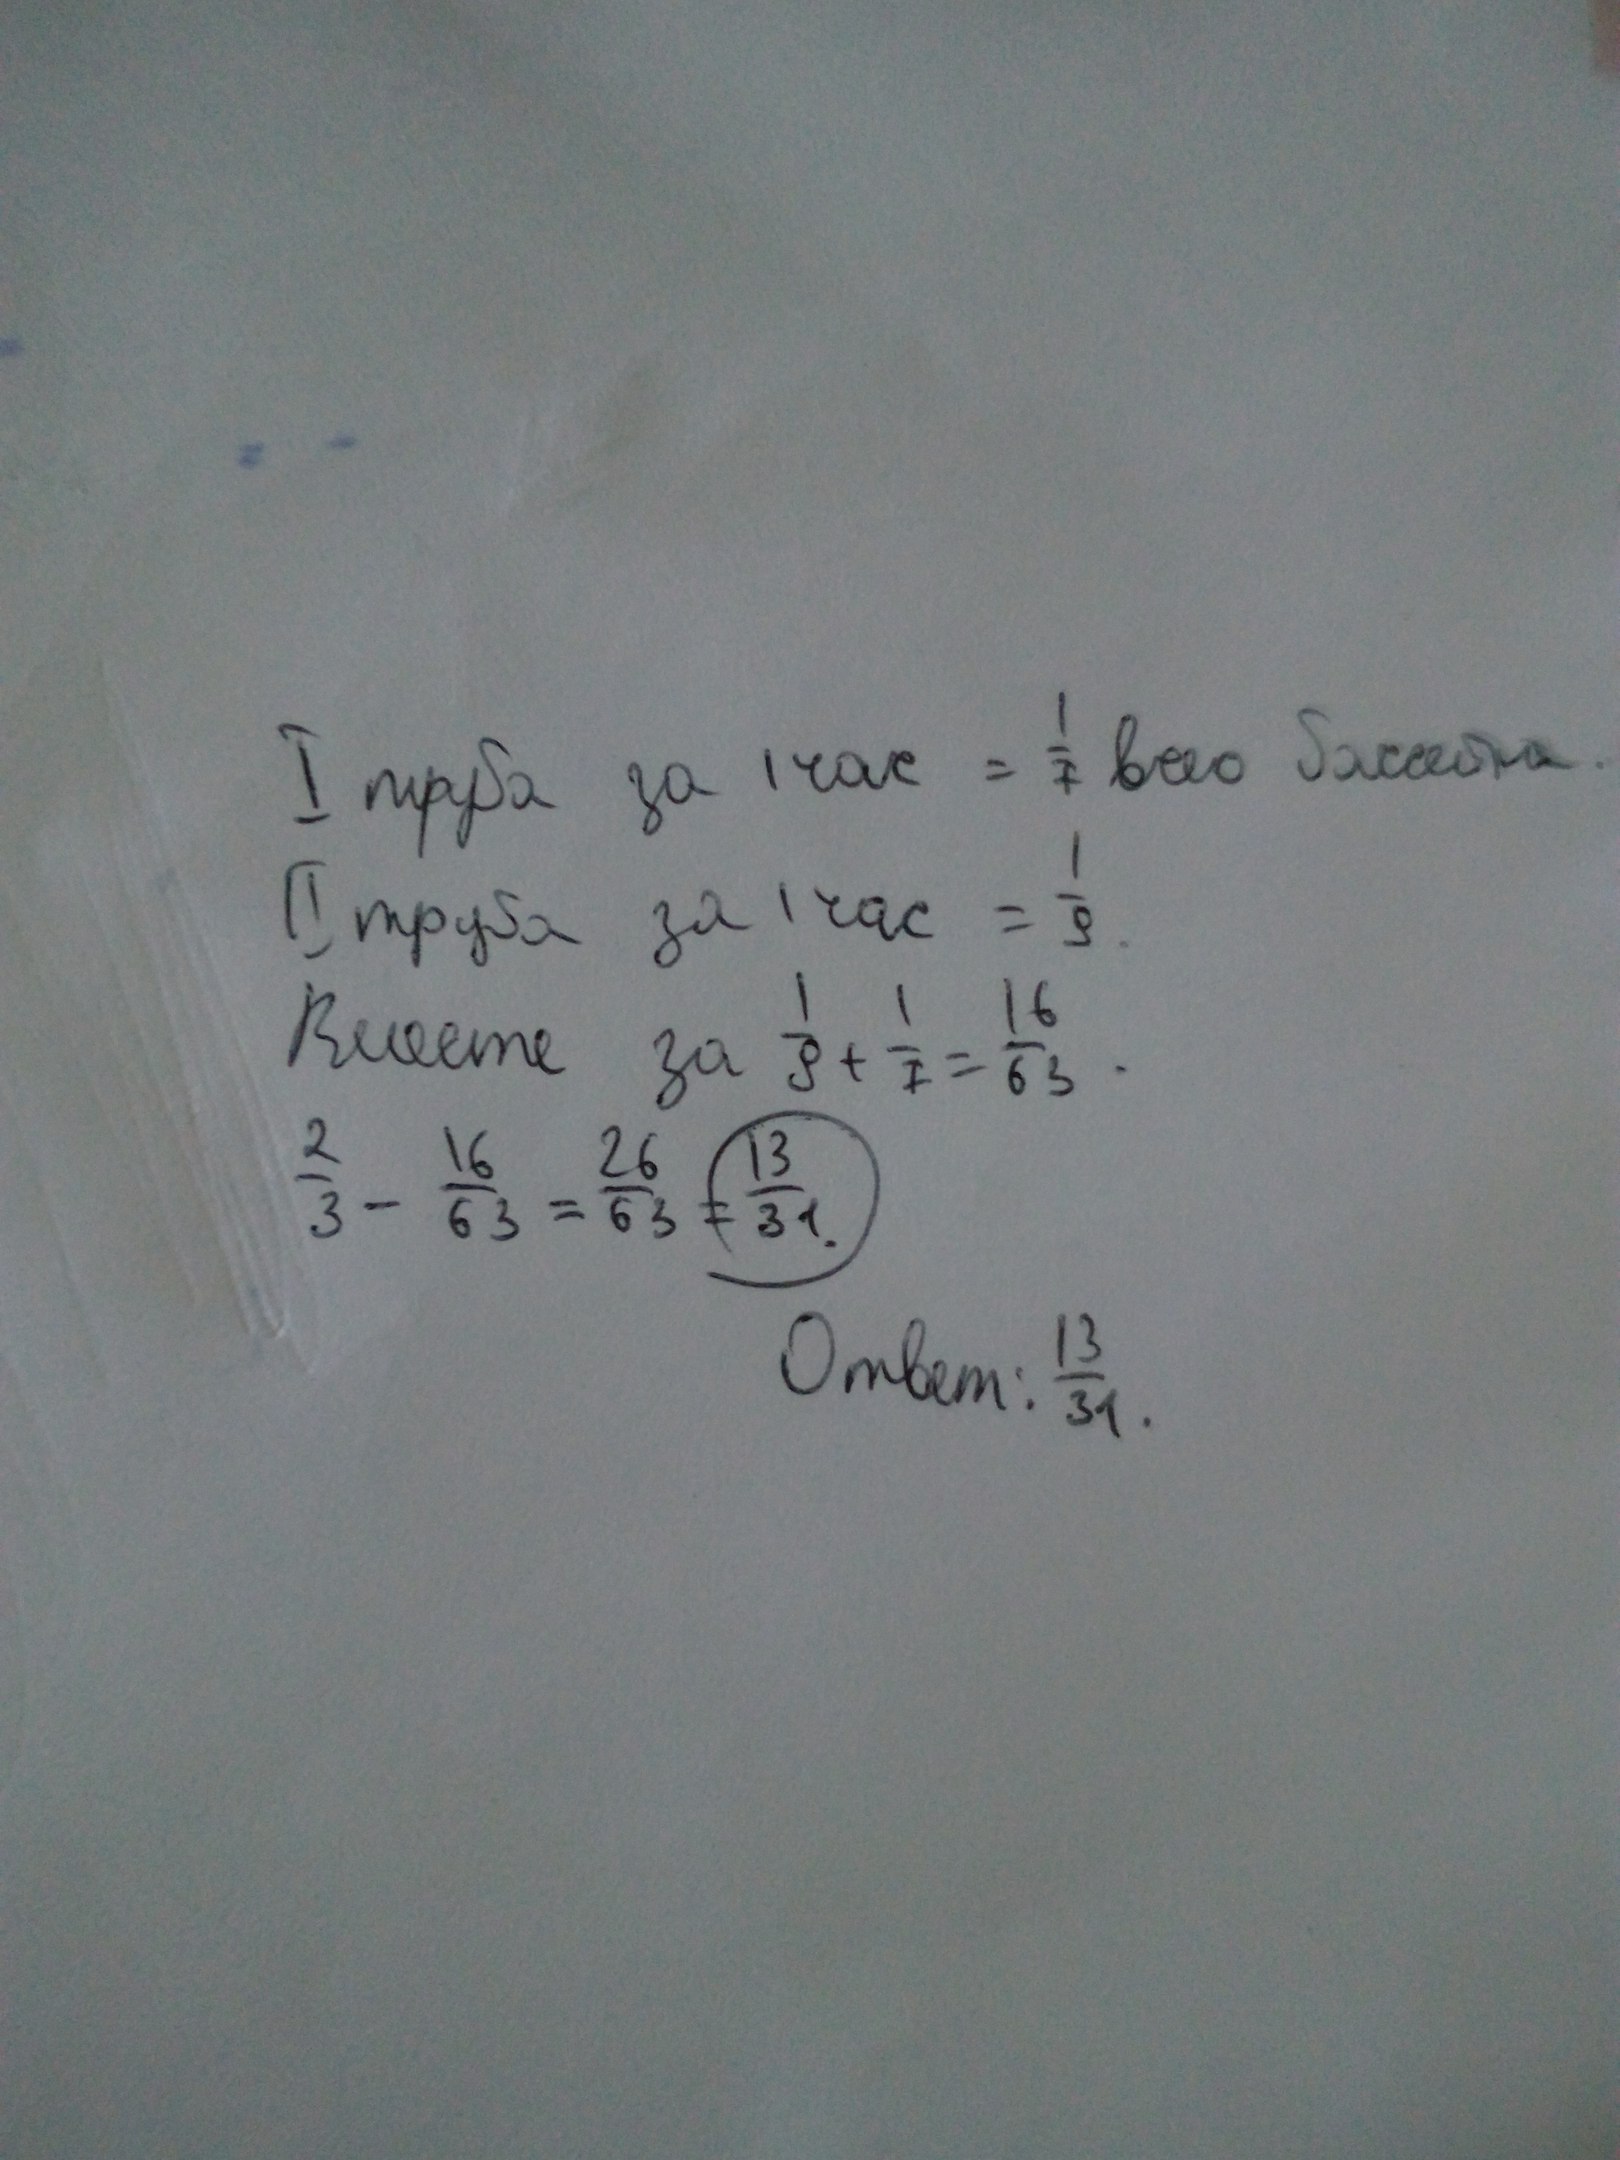 I труба за 1 час = 1/7 всего бассейна.
II труба за 1 час = 1/9.
Вместе за 1/9 + 1/7 = 16/63.
2/3 - 16/63 = 26/63 = 13/31.
Ответ: 13/31.